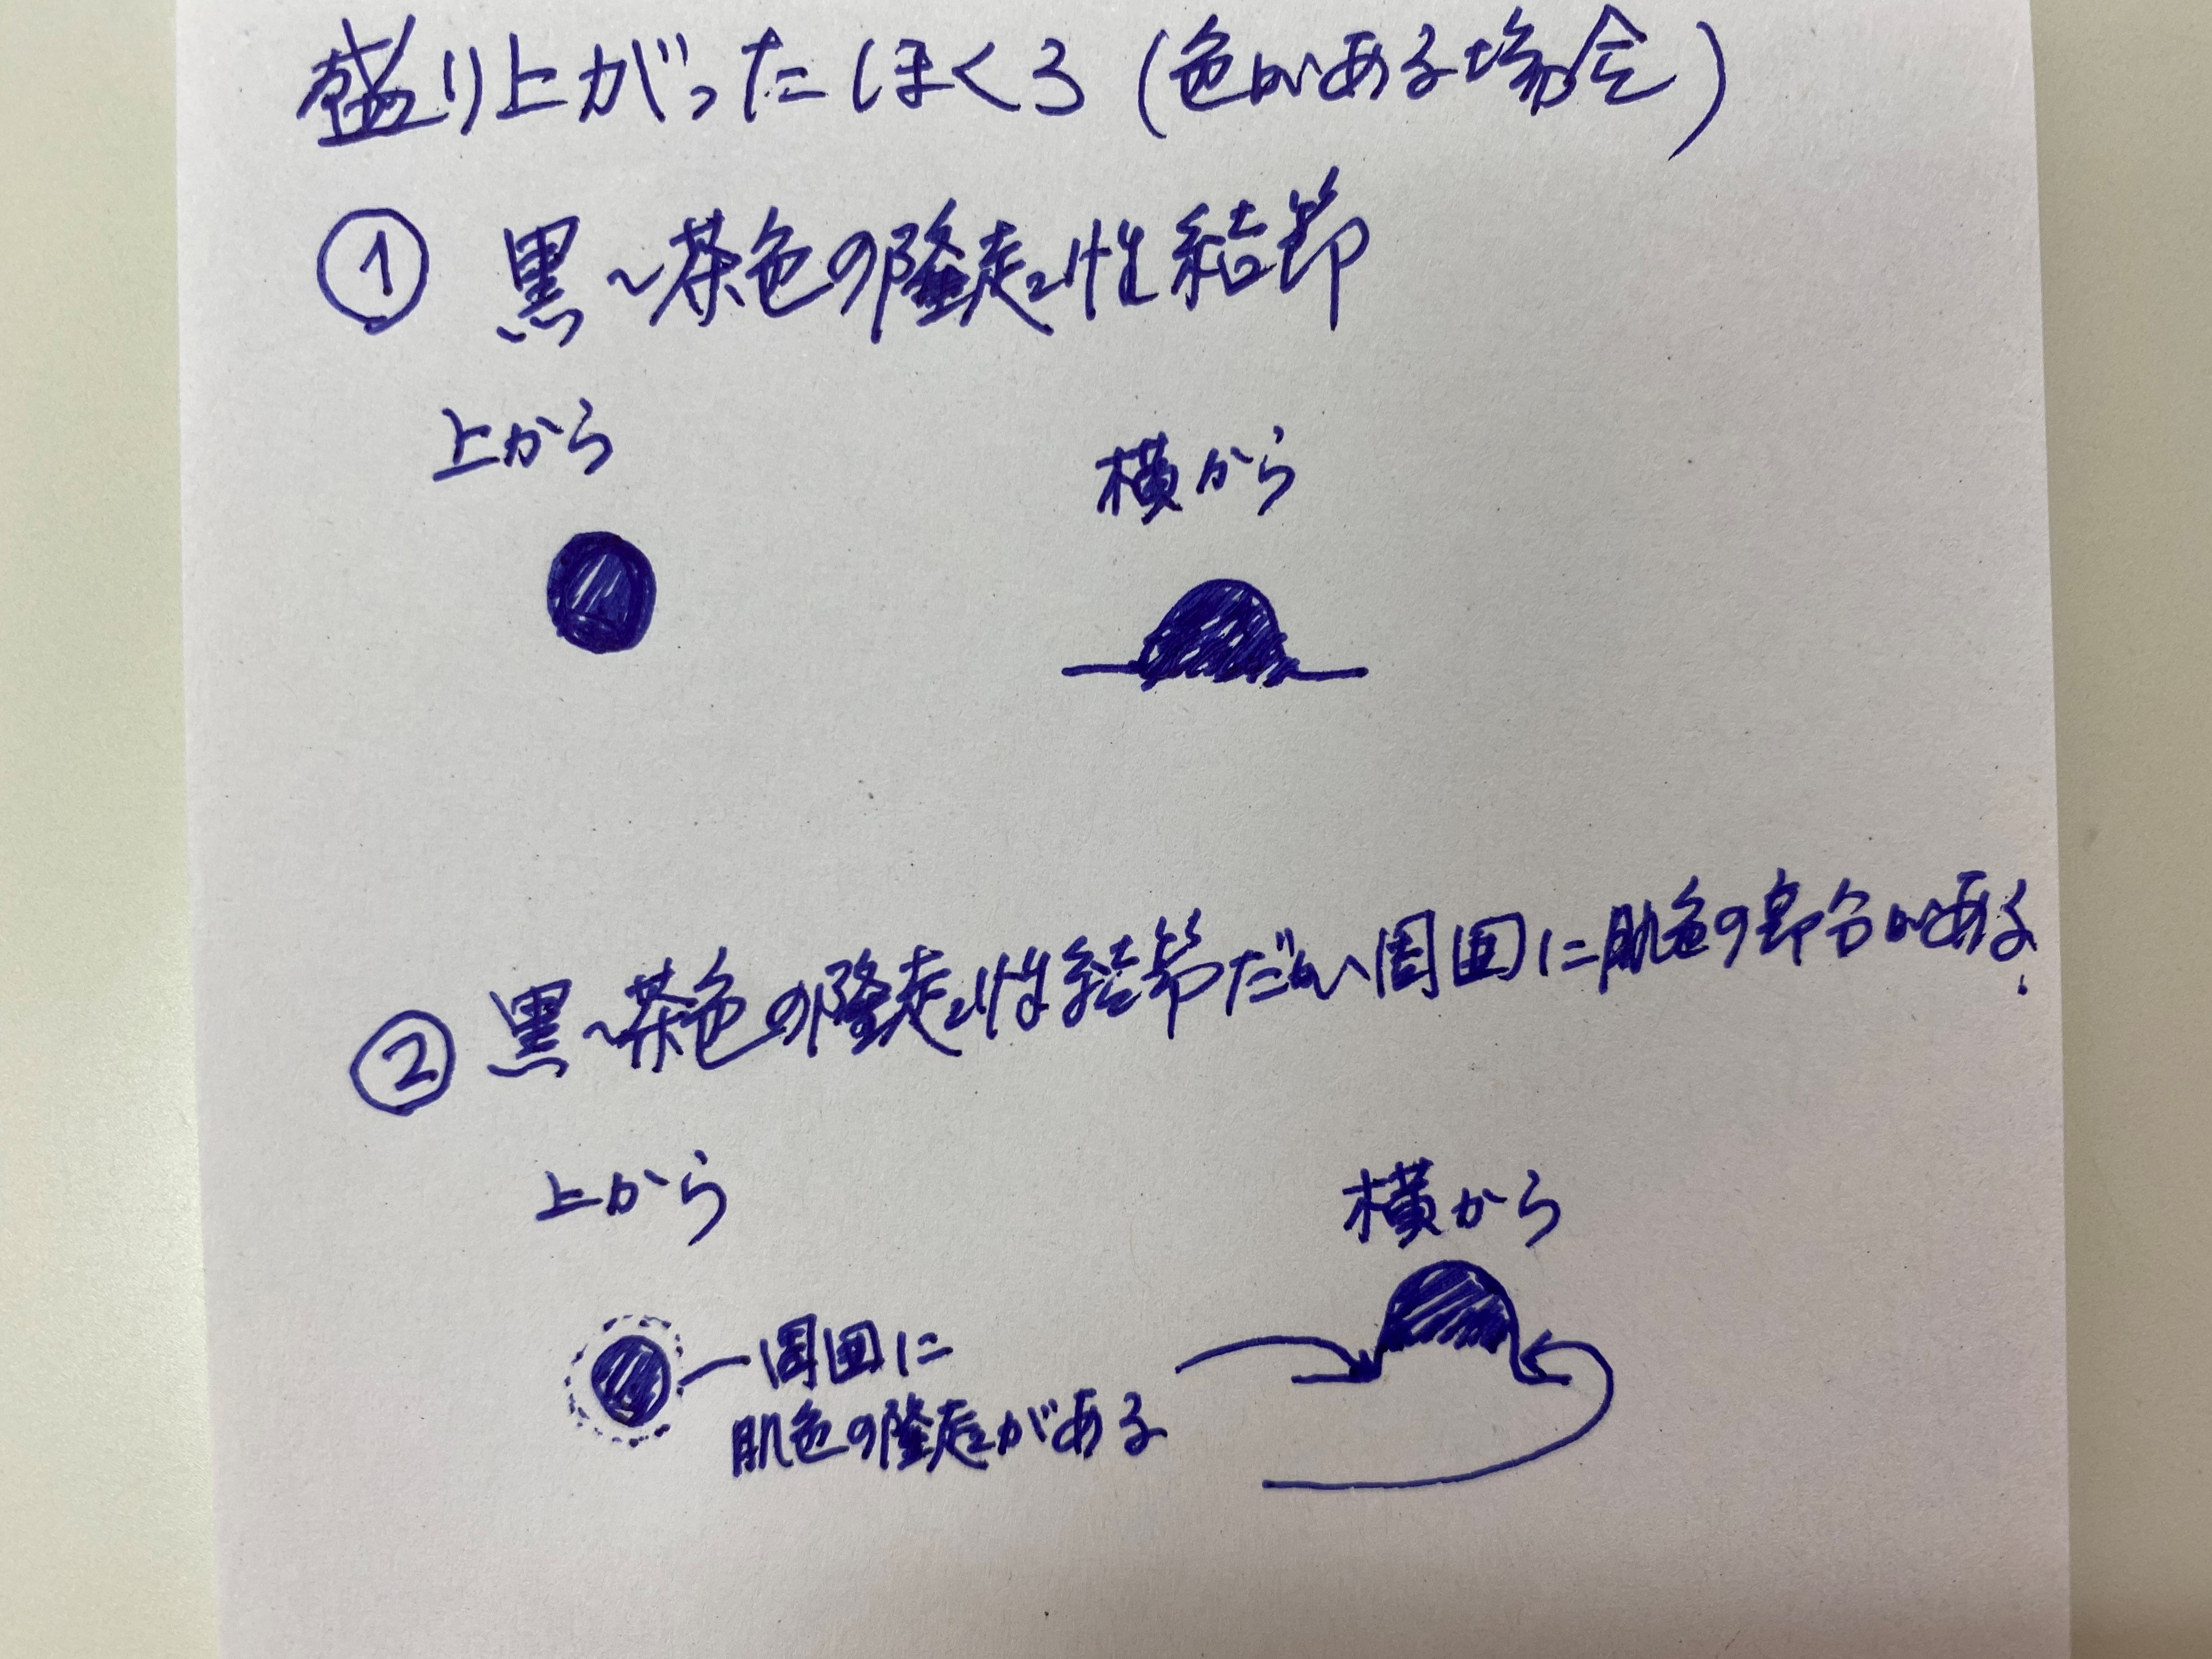 盛り上がったほくろ(色がある場合)
① 黒~茶色の隆起性結節
上から
横から
② 黒~茶色の隆起性結節だが周囲に肌色の部分がある.
上から
横から
周囲に
肌色の隆起がある